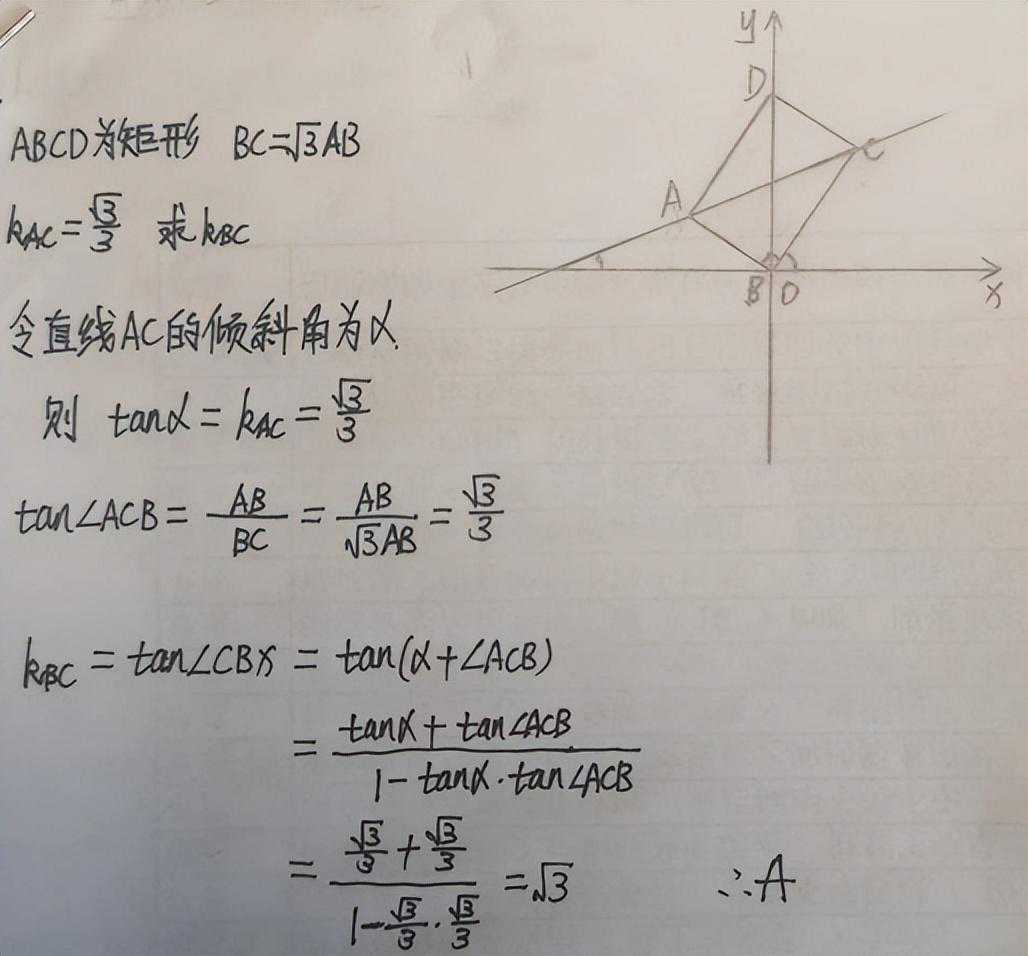 ABCD为矩形 BC=√3AB
kAC=√3/3 求kBC
令直线AC的倾斜角为α.
则 tanα=kAC=√3/3
tan∠ACB=AB/BC=AB/√3AB=√3/3
kBC=tan∠CBx=tan(α+∠ACB)
=(tanα+tan∠ACB)/(1-tanα·tan∠ACB)
=(√3/3+√3/3)/(1-√3/3·√3/3)=√3 ∴A
y
D
C
A
B O
x